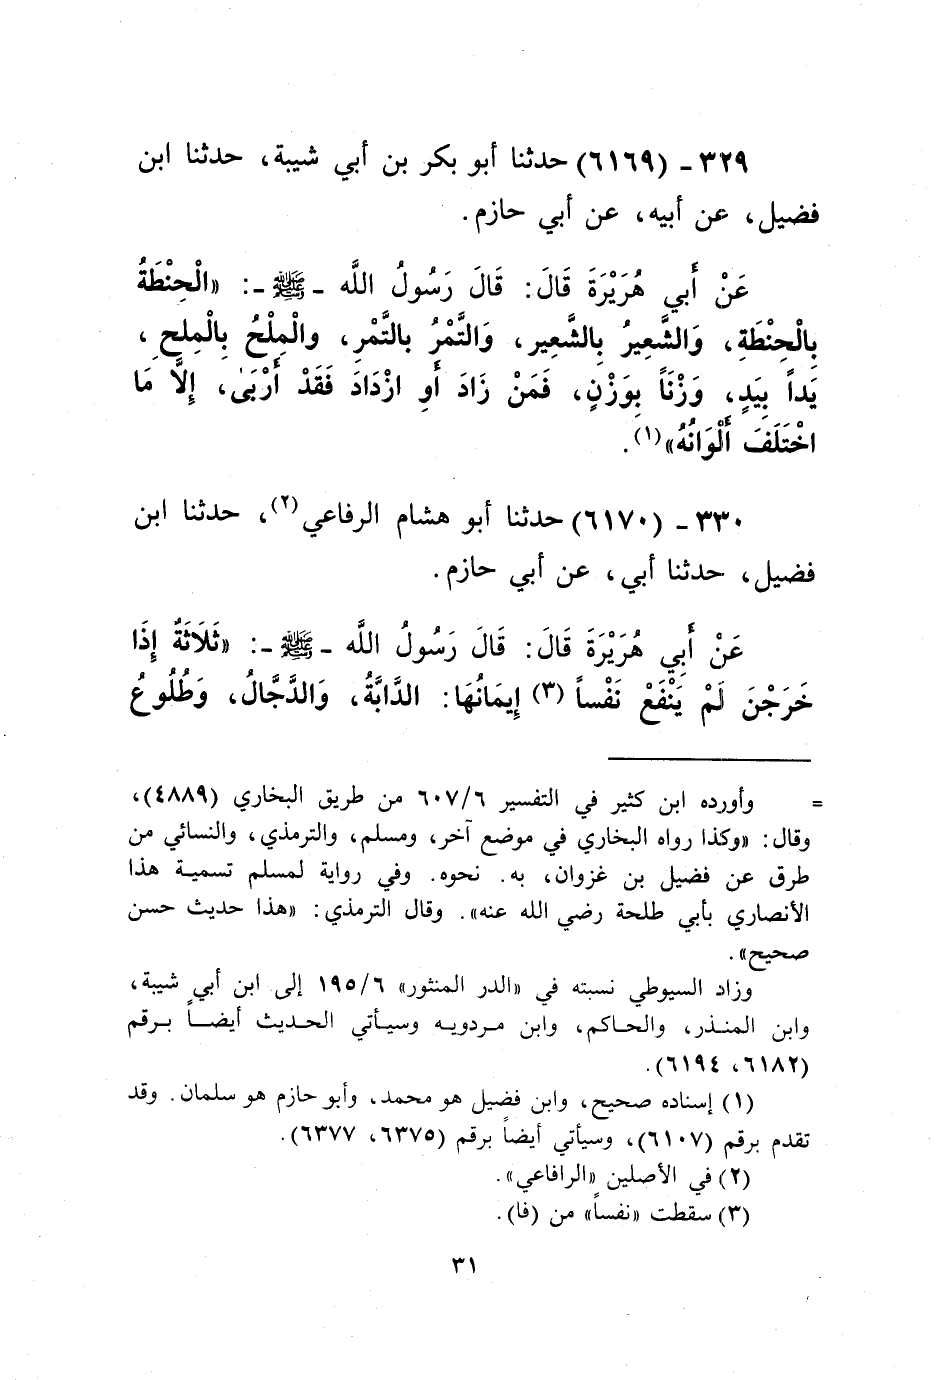 ٣٢٩ - (٦١٦٩) حدثنا أبو بكر بن أبي شيبة، حدثنا ابن
فضيل، عن أبيه، عن أبي حازم.
عَنْ أَبِي هُرَيْرَةَ قَالَ: قَالَ رَسُولُ اللَّه - ﷺ -: «الْحِنْطَةُ
بِالْحِنْطَةِ، وَالشَّعِيرُ بِالشَّعِيرِ، وَالتَّمْرُ بالتَّمْرِ، والْمِلْحُ بِالْمِلحِ،
يَداً بِيَدٍ، وَزْنَاً بِوَزْنٍ، فَمَنْ زَادَ أَوِ ازْدَادَ فَقَدْ أَرْبَىٰ، إِلَّا مَا
اخْتَلَفَ أَلْوَانُهُ»(١).
٣٣٠ - (٦١٧٠) حدثنا أبو هشام الرفاعي(٢)، حدثنا ابن
فضيل، حدثنا أبي، عن أبي حازم.
عَنْ أَبِي هُرَيْرَةَ قَالَ: قَالَ رَسُولُ اللَّه - ﷺ -: «ثَلَاثَةٌ إِذَا
خَرَجْنَ لَمْ يَنْفَعْ نَفْساً (٣) إِيمَانُهَا: الدَّابَّةُ، وَالدَّجَّالُ، وَطُلُوعُ
= وأورده ابن كثير في التفسير ٦٠٧/٦ من طريق البخاري (٤٨٨٩)،
وقال: «وكذا رواه البخاري في موضع آخر، ومسلم، والترمذي، والنسائي من
طرق عن فضيل بن غزوان، به. نحوه. وفي رواية لمسلم تسمية هذا
الأنصاري بأبي طلحة رضي الله عنه». وقال الترمذي: «هذا حديث حسن
صحيح».
وزاد السيوطي نسبته في «الدر المنثور» ١٩٥/٦ إلى ابن أبي شيبة،
وابن المنذر، والحاكم، وابن مردويه وسيأتي الحديث أيضاً برقم
(٦١٨٢، ٦١٩٤).
(١) إسناده صحيح، وابن فضيل هو محمد، وأبو حازم هو سلمان. وقد
تقدم برقم (٦١٠٧)، وسيأتي أيضاً برقم (٦٣٧٥، ٦٣٧٧).
(٢) في الأصلين «الرافاعي».
(٣) سقطت «نفساً» من (فا).
٣١